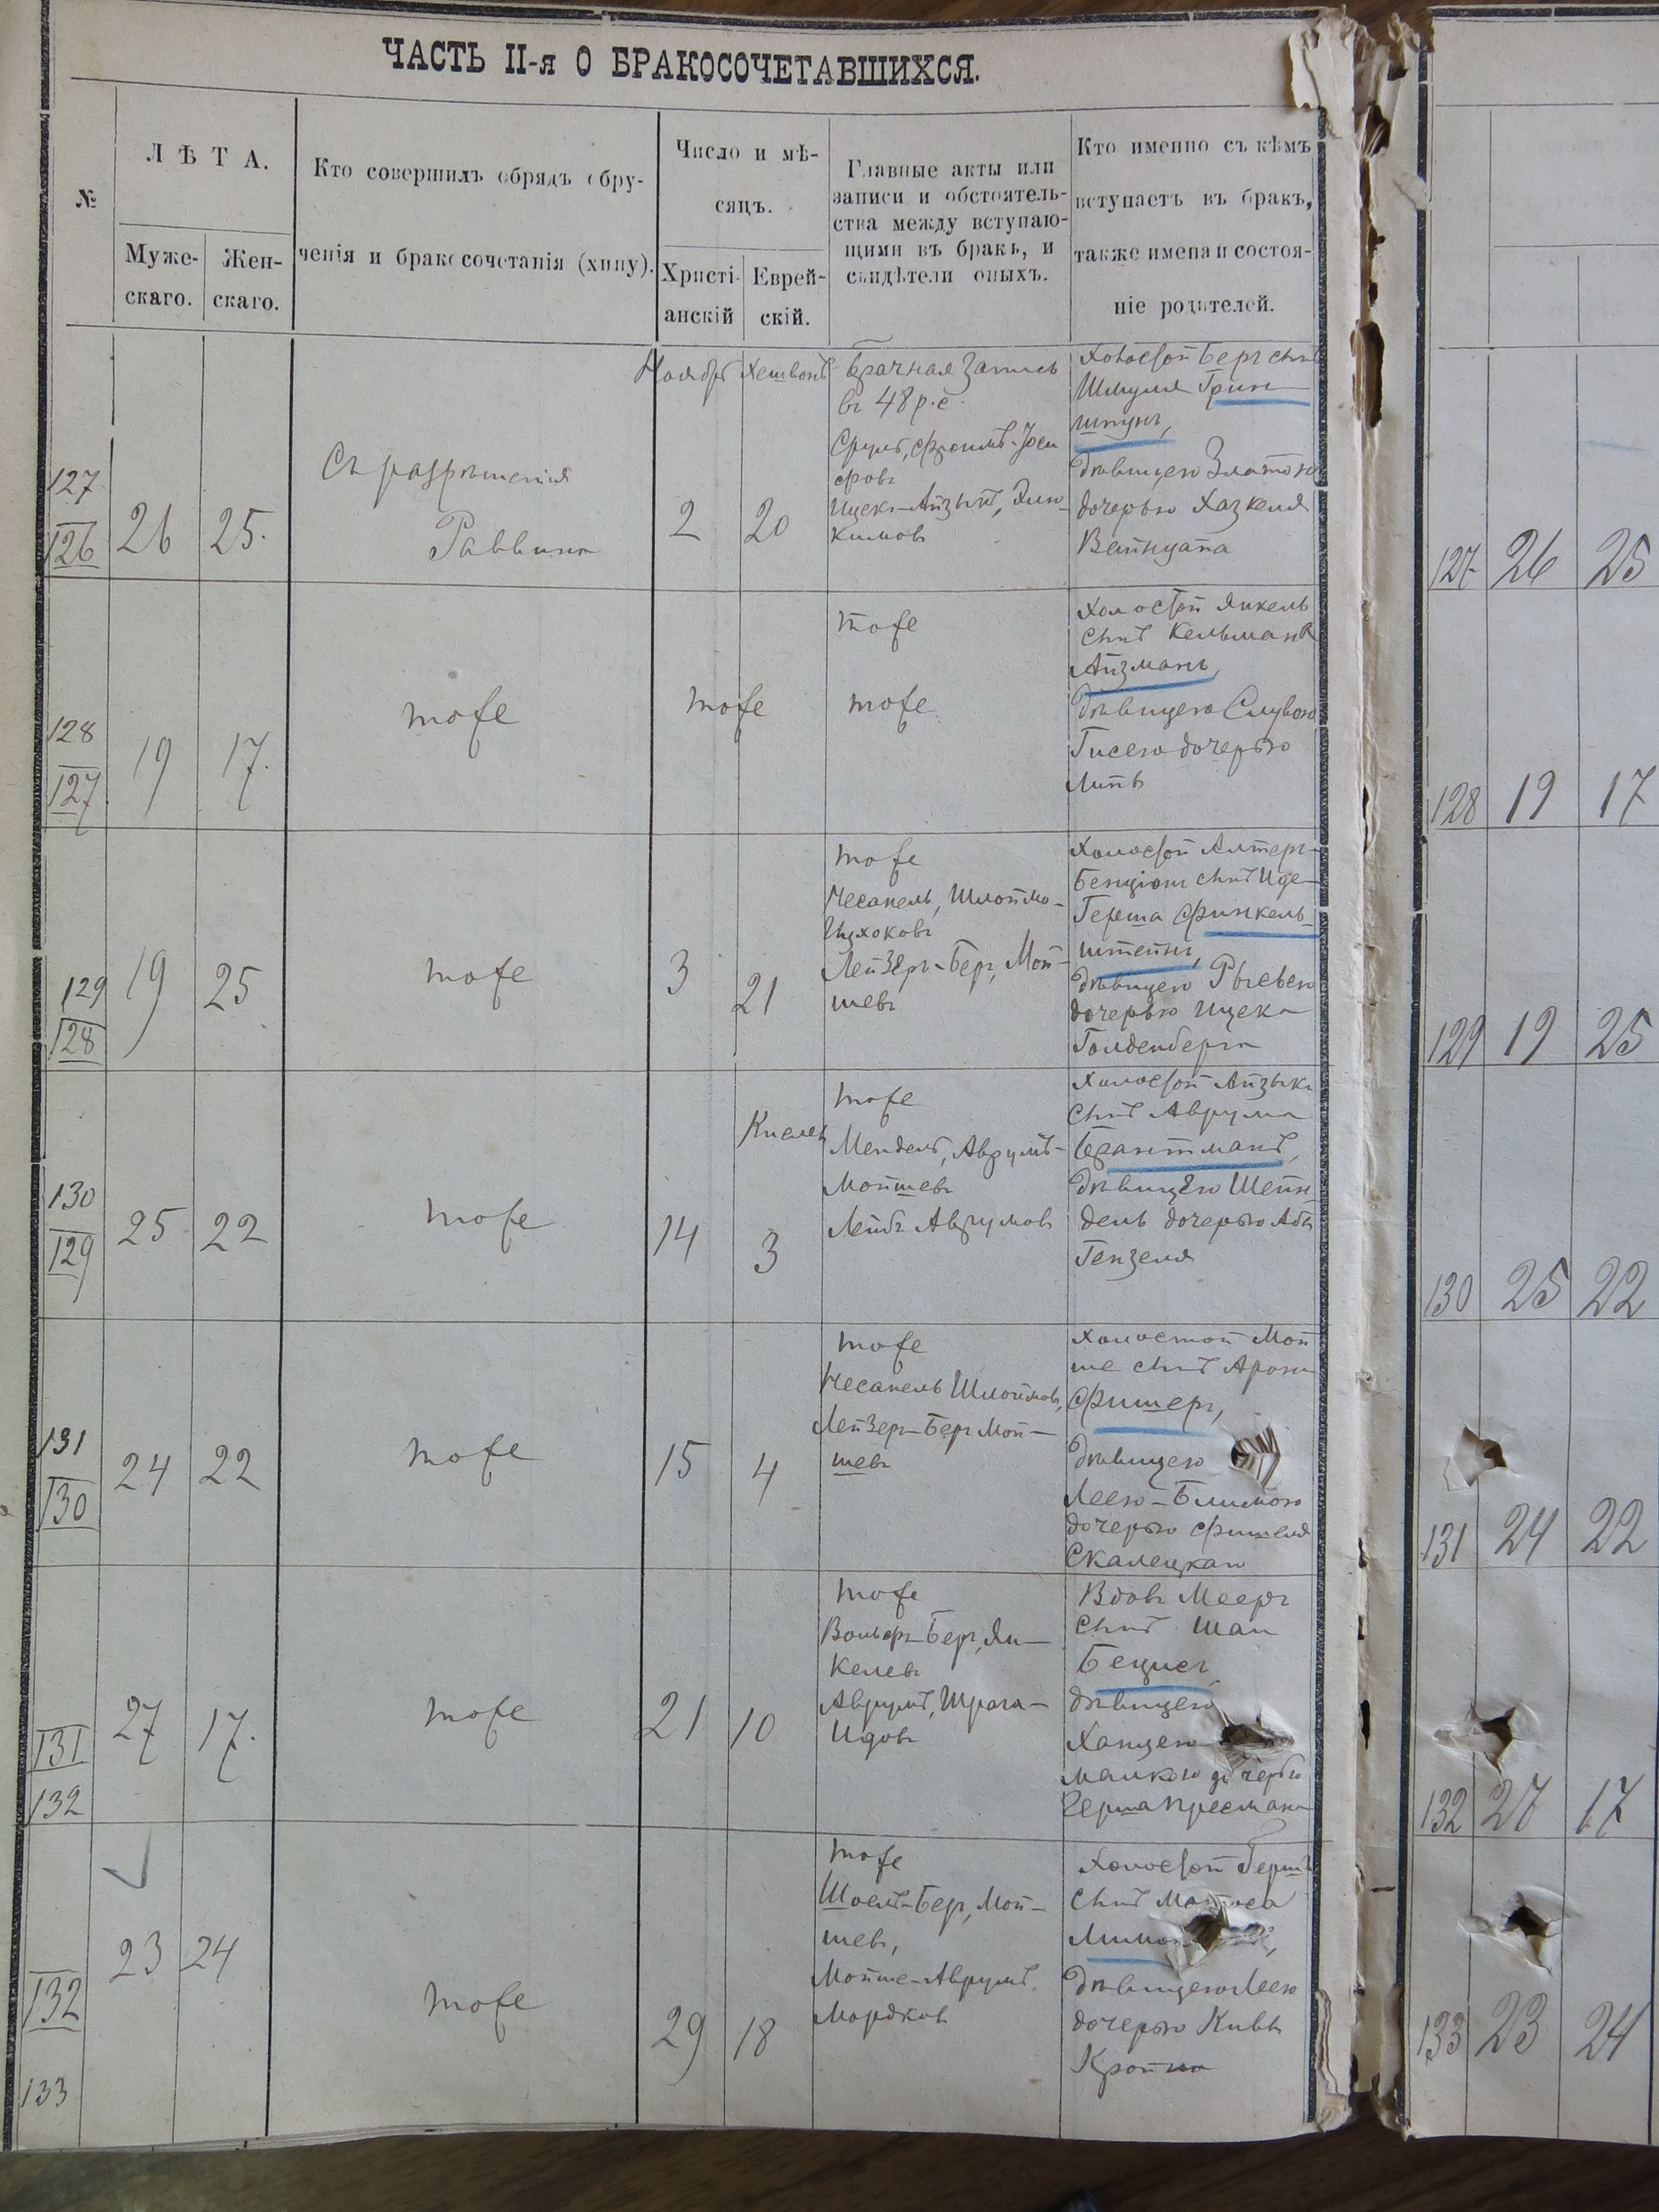 ЧАСТЬ II-я О БРАКОСОЧЕТАВШИХСЯ.
№
ЛѢТА.
Муже-
скаго.
Жен-
скаго.
Кто совершилъ обрядъ обру-
ченія и бракосочетанія (хипу).
Число и мѣ-
сяцъ.
Христі-
анскій
Еврей-
скій.
Главные акты или
записи и обстоятель-
ства между вступаю-
щими въ бракъ, и
свидѣтели оныхъ.
Кто именно съ кѣмъ
вступаетъ въ бракъ,
также имена и состоя-
ніе родителей.
127
126
26
25.
Съ разрѣшенія
Раввина
Ноябрь
2
Хешвонъ
20
Брачная запись
въ 48 р. с.
Сруль, Фроимъ-Іоси
фовъ
Ицекъ-Айзыкъ, Эли-
кимовъ
Холостой Беръ сынъ
Шмуля Грин
шпунъ,
дѣвицею Златою
дочерью Хазкеля
Вайнцапа
128
127
19
17.
тоже
тоже
тоже
тоже
Холостой Янкель
сынъ Кельмана
Айзманъ,
дѣвицею Слувою
Гисею дочерью
Липы
129
128
19
25
тоже
3
21
тоже
Чесанель, Шлоймо-
Ицхоковъ
Лейзеръ-Беръ, Мой-
шевъ
Холостой Алтеръ-
Бенціонъ сынъ Иде-
Герша Финкель-
штейнъ,
дѣвицею Рысею
дочерью Ицека
Голденберга
130
129
25
22
тоже
14
Кислевъ
3
тоже
Мендель, Аврумъ-
Мойшевъ
Лейбъ Аврумовъ
Холостой Айзыкъ
сынъ Аврума
Брантманъ,
дѣвицею Шейн
дель дочерью Абы
Гензеля
131
130
24
22
тоже
15
4
тоже
Чесанель Шлоймовъ,
Лейзеръ-Беръ Мой-
шевъ
Холостой Мой
ше сынъ Арона
Фишеръ,
дѣвицею
Леею-Блимою
дочерью Фишеля
Скалецкаго
131
132
27
17.
тоже
21
10
тоже
Вольфъ-Беръ, Ян-
келевъ
Аврумъ, Шрага-
Идовъ
Вдовъ Мееръ
сынъ Шаи
Бецисъ
дѣвицею
Ханцею
Малкою дочерью
Герша Пресмана
132
133
23
24
тоже
29
18
тоже
Шоель-Беръ, Мой-
шевъ,
Мойше-Аврумъ,
Мордковъ
Холостой Гершъ
сынъ
дѣвицею Леею
дочерью Кивы
127
26
25
128
19
17
129
19
25
130
25
22
131
24
22
132
27
17
133
23
24